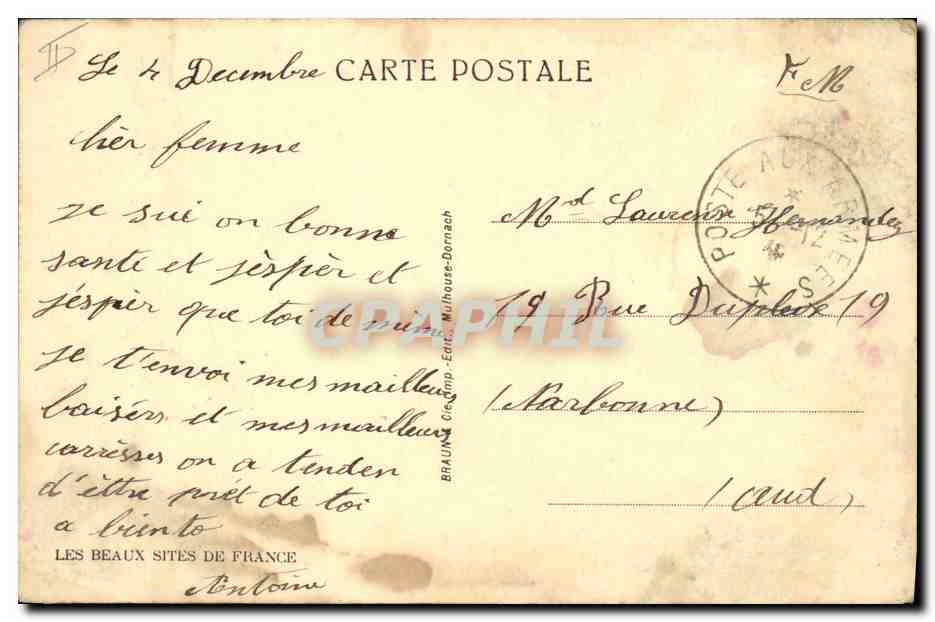 Le 4 Decembre CARTE POSTALE
F M
Chèr femme
Je sui on bonne
santé et j'espèr et
j'espèr que toi de mime
je t'envoi mes mailleurs
baisérs et mes mailleurs
carrèsses on a tenden
d'èttre prét de toi
a biento
LES BEAUX SITES DE FRANCE
Antoine
BRAUN & Cie, Imp.-Edit., Mulhouse-Dornach
POSTE AUX ARMEES
5 -12
Md Laurense Hernandez
19 Rue Dupleix 19
(Narbonne)
(Aud)
CPAPHIL